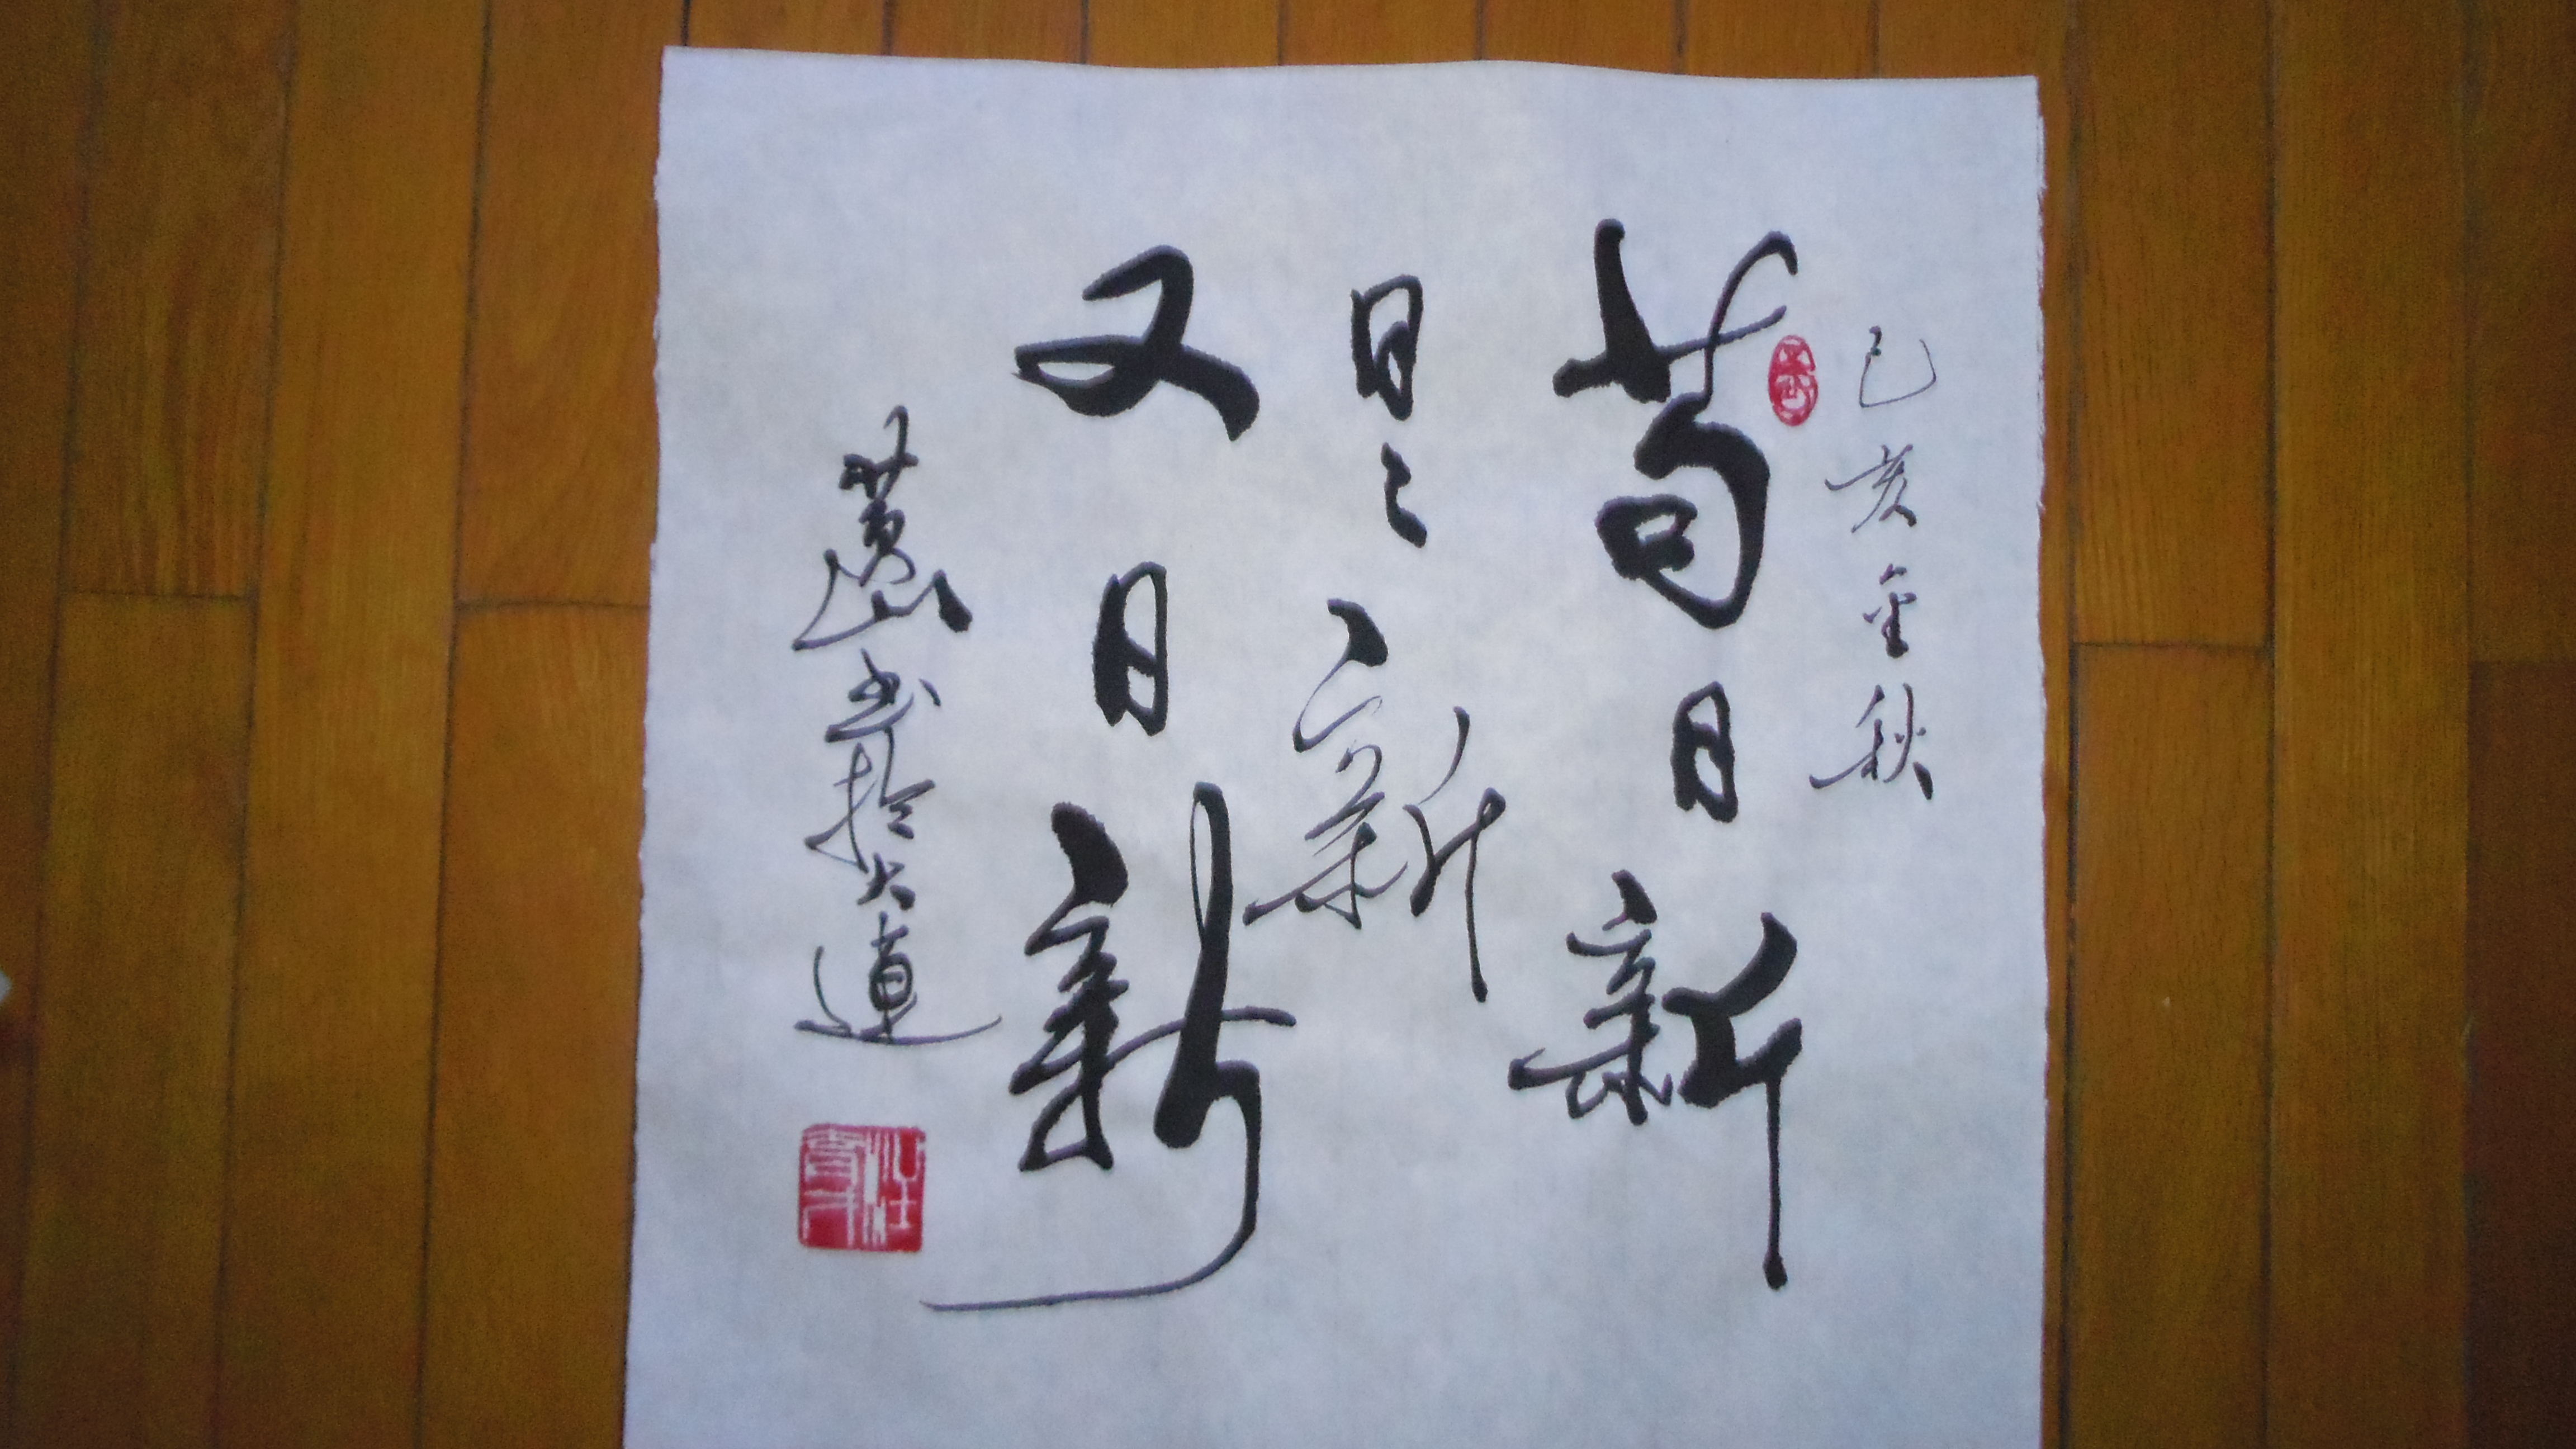 己亥金秋
苟日新
日日新
又日新
萬山书於大連